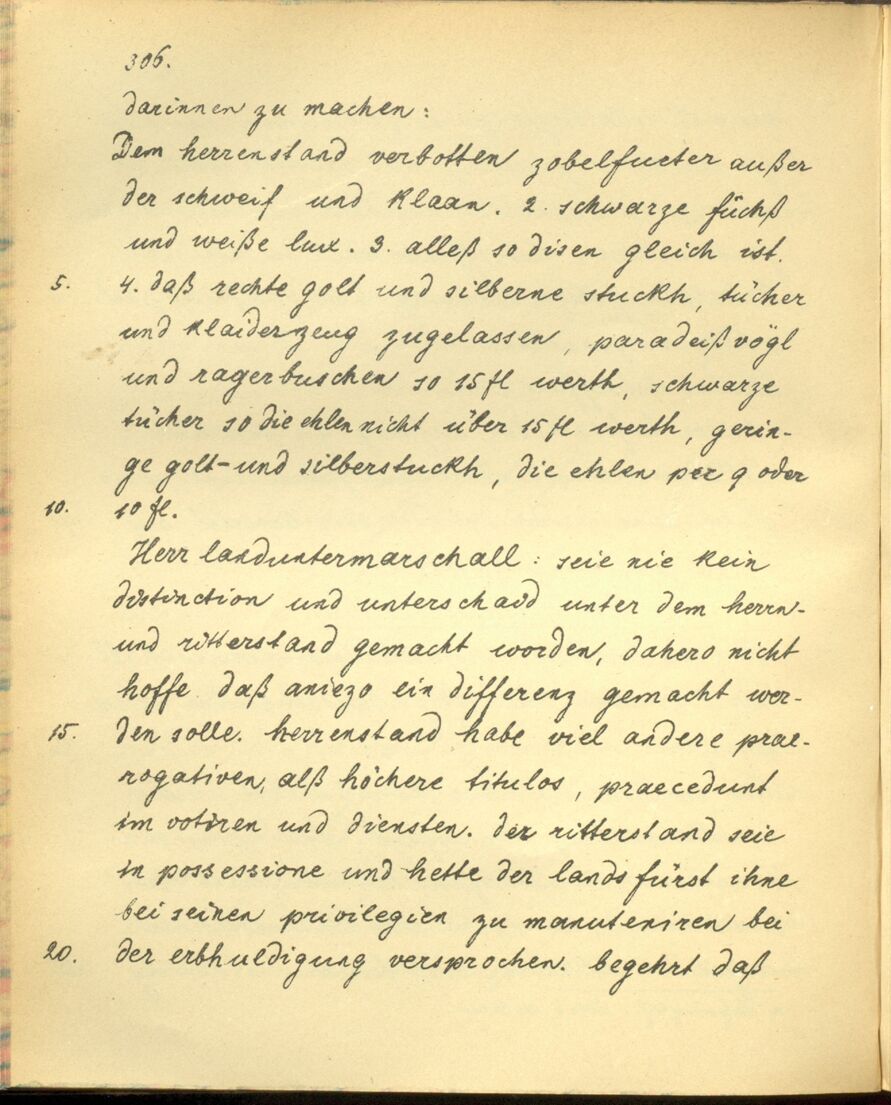 306.
darinnen zu machen:
Dem herrenstand verbotten zobelfueter außer
der schweif und klaan. 2. schwarze füchß
und weiße lux. 3. alleß so disen gleich ist.
5. 4. daß rechte golt und silberne stuckh, tücher
und klaiderzeug zugelassen, paradeißvögl
und ragerbuschen so 15 fl werth, schwarze
tücher so die ehlen nicht über 15 fl werth, gerin-
ge golt- und silberstuckh, die ehlen per 9 oder
10. 10 fl.
Herr landuntermarschall: seie nie kein
distinction und unterschaid unter dem herrn-
und ritterstand gemacht worden, dahero nicht
hoffe daß aniezo ein differenz gemacht wer-
15. den solle. herrenstand habe viel andere prae-
rogativen, alß höchere titulos, praecedunt
im votiren und diensten. der ritterstand seie
in possessione und hette der landsfürst ihne
bei seinen privilegien zu manuteniren bei
20. der erbhuldigung versprochen. begehrt daß